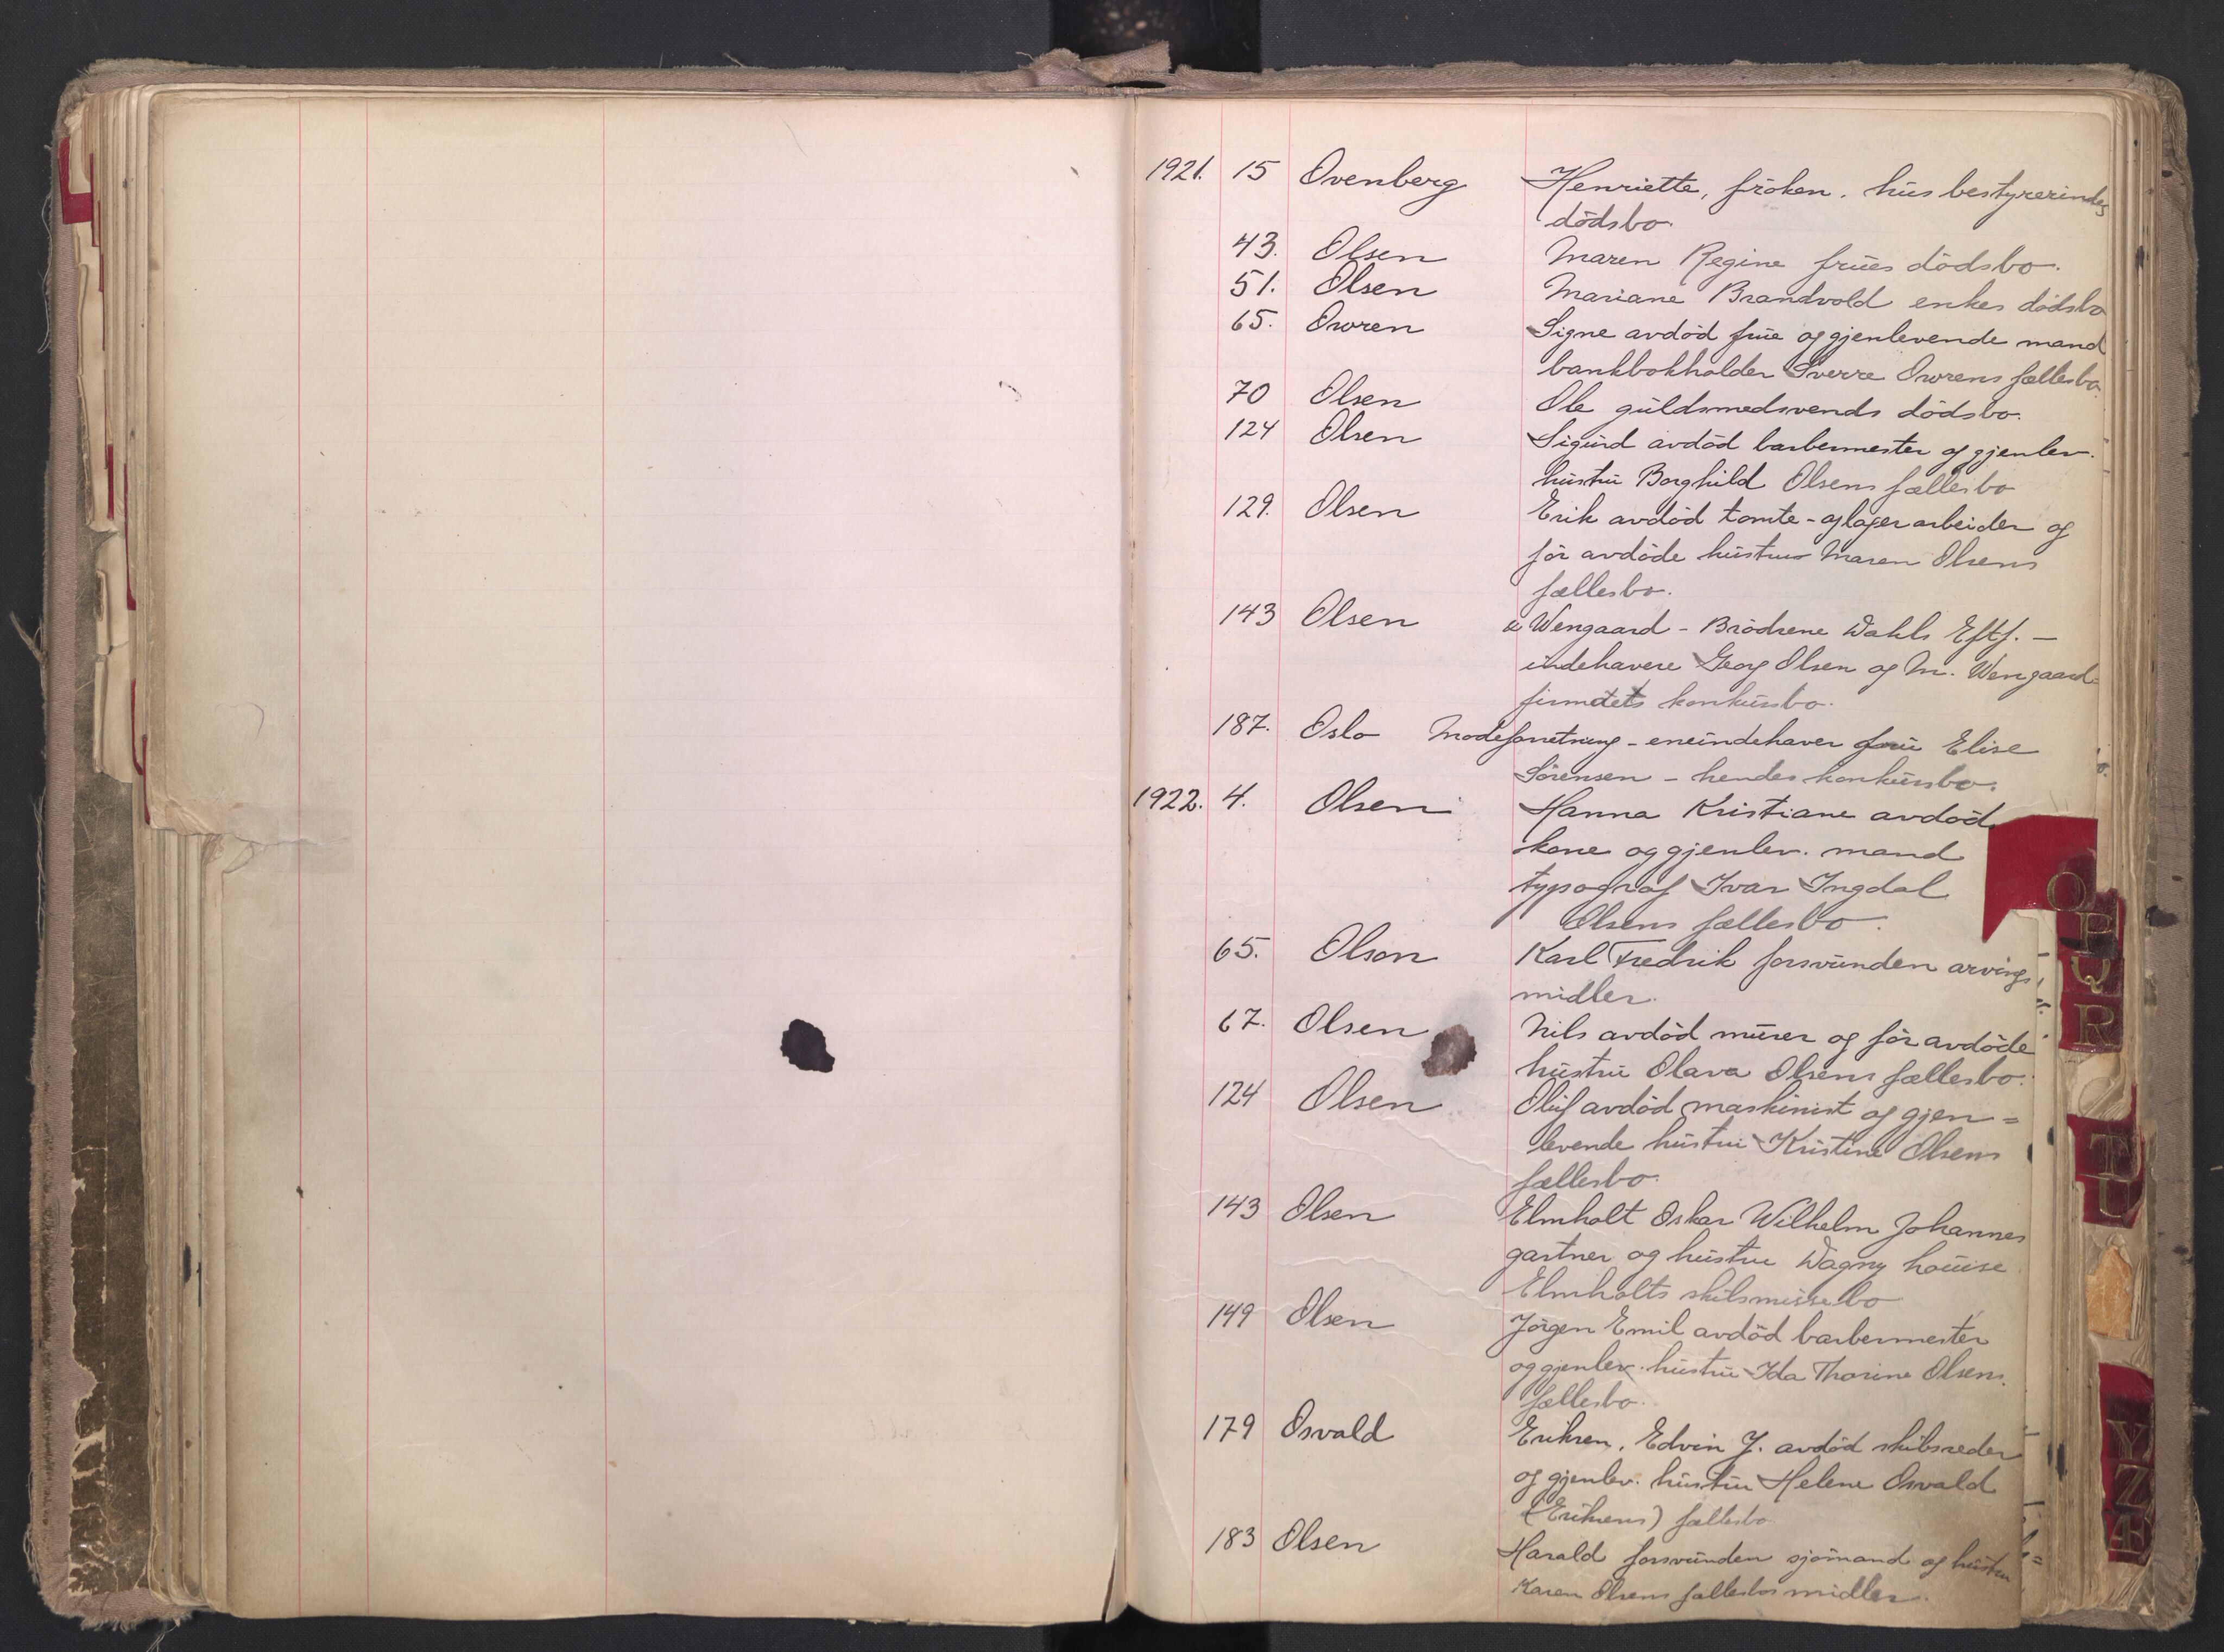 1921. 15 Ovenberg Henriette, frøken. husbestyrerindes
dödsbo.
43. Olsen Maren Regine frues dödsbo.
51. Olsen Mariane Brandvold enkes dödsbo
65. Owren Signe avdöd frue og gjenlevende mand
bankbokholder Sverre Owrens fællesbo.
70 Olsen Ole guldsmedsvends dödsbo.
124 Olsen Sigurd avdöd barbermester og gjenlev.
hustru Borghild Olsens fællesbo
129. Olsen Erik avdöd tomte- og lagerarbeider og
för avdöde hustru Maren Olsens
fællesbo.
143 Olsen & Wengaard - Brödrene Dahls Eftf. -
indehavere Georg Olsen og M. Wengaard=
firmaets konkursbo.
187. Oslo Modeforretning - eneindehaver fru Elise
Sörensen - hendes konkursbo.
1922. 4. Olsen Hanna Kristiane avdöd
kone og gjenlev. mand
typograf Ivar Ingdal
Olsens fællesbo.
65. Olson Karl Fredrik forsvunden arvings
midler.
67. Olsen Nils avdöd murer og för avdöde
hustru Olava Olsens fællesbo.
124 Olsen Oluf avdöd maskinist og gjen=
levende hustru Kristine Olsens
fællesbo.
143 Olsen Elmholt Oskar Wilhelm Johannes
gartner og hustru Dagny Louise
Elmholts skilsmissebo
149 Olsen Jörgen Emil avdöd barbermester
og gjenlev. hustru Ida Thorine Olsens.
fællesbo.
179 Osvald Eriksen, Edvin J. avdöd skibsreder
og gjenlev. hustru Helene Osvald
(Eriksens) fællesbo
183 Olsen Harald forsvunden sjömand og hustru
Karen Olsens fællesbos midler.
O
P
Q
R
T
U
Y
Z
Æ